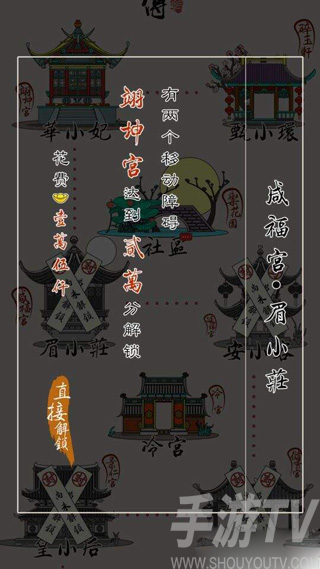 咸福宫·眉小莊
有两个移动障碍
翊坤宫达到贰萬分解锁
花费壹萬伍仟
直接解鎖
華小妃
甄小環
社區
眉小莊
安小容
冷宫
皇小后
手游TV
WWW.SHOUYOUTV.COM